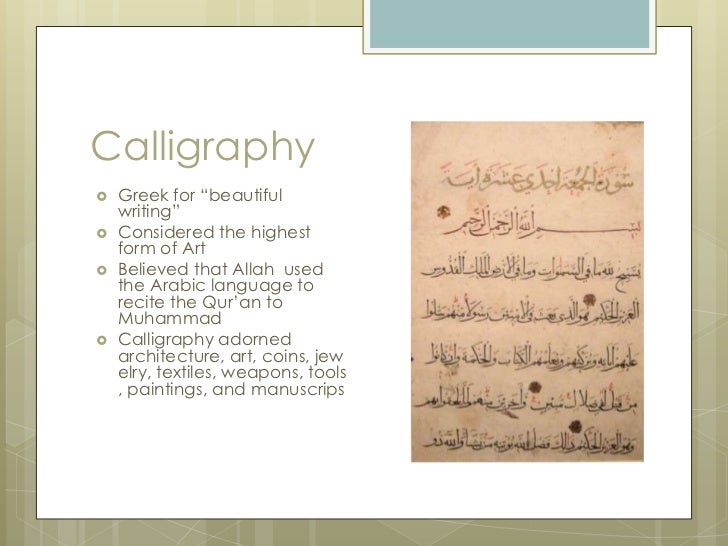 Calligraphy
Greek for “beautiful
writing”
Considered the highest
form of Art
Believed that Allah used
the Arabic language to
recite the Qur’an to
Muhammad
Calligraphy adorned
architecture, art, coins, jew
elry, textiles, weapons, tools
, paintings, and manuscrips
سورة الجمعة احدي عشره اية
بسم الله الرحمن الرحيم
يسبح لله ما في السموات وما في الارض الملك القدوس
العزيز الحكيم هو الذي بعث في الاميين رسولا منهم يتلوا
عليهم اياته ويزكيهم ويعلمهم الكتاب والحكمة وان كانوا
من قبل لفي ضلال مبين واخرين منهم لما يلحقوا بهم
وهو العزيز الحكيم ذلك فضل الله يوتيه من يشاء والله ذو